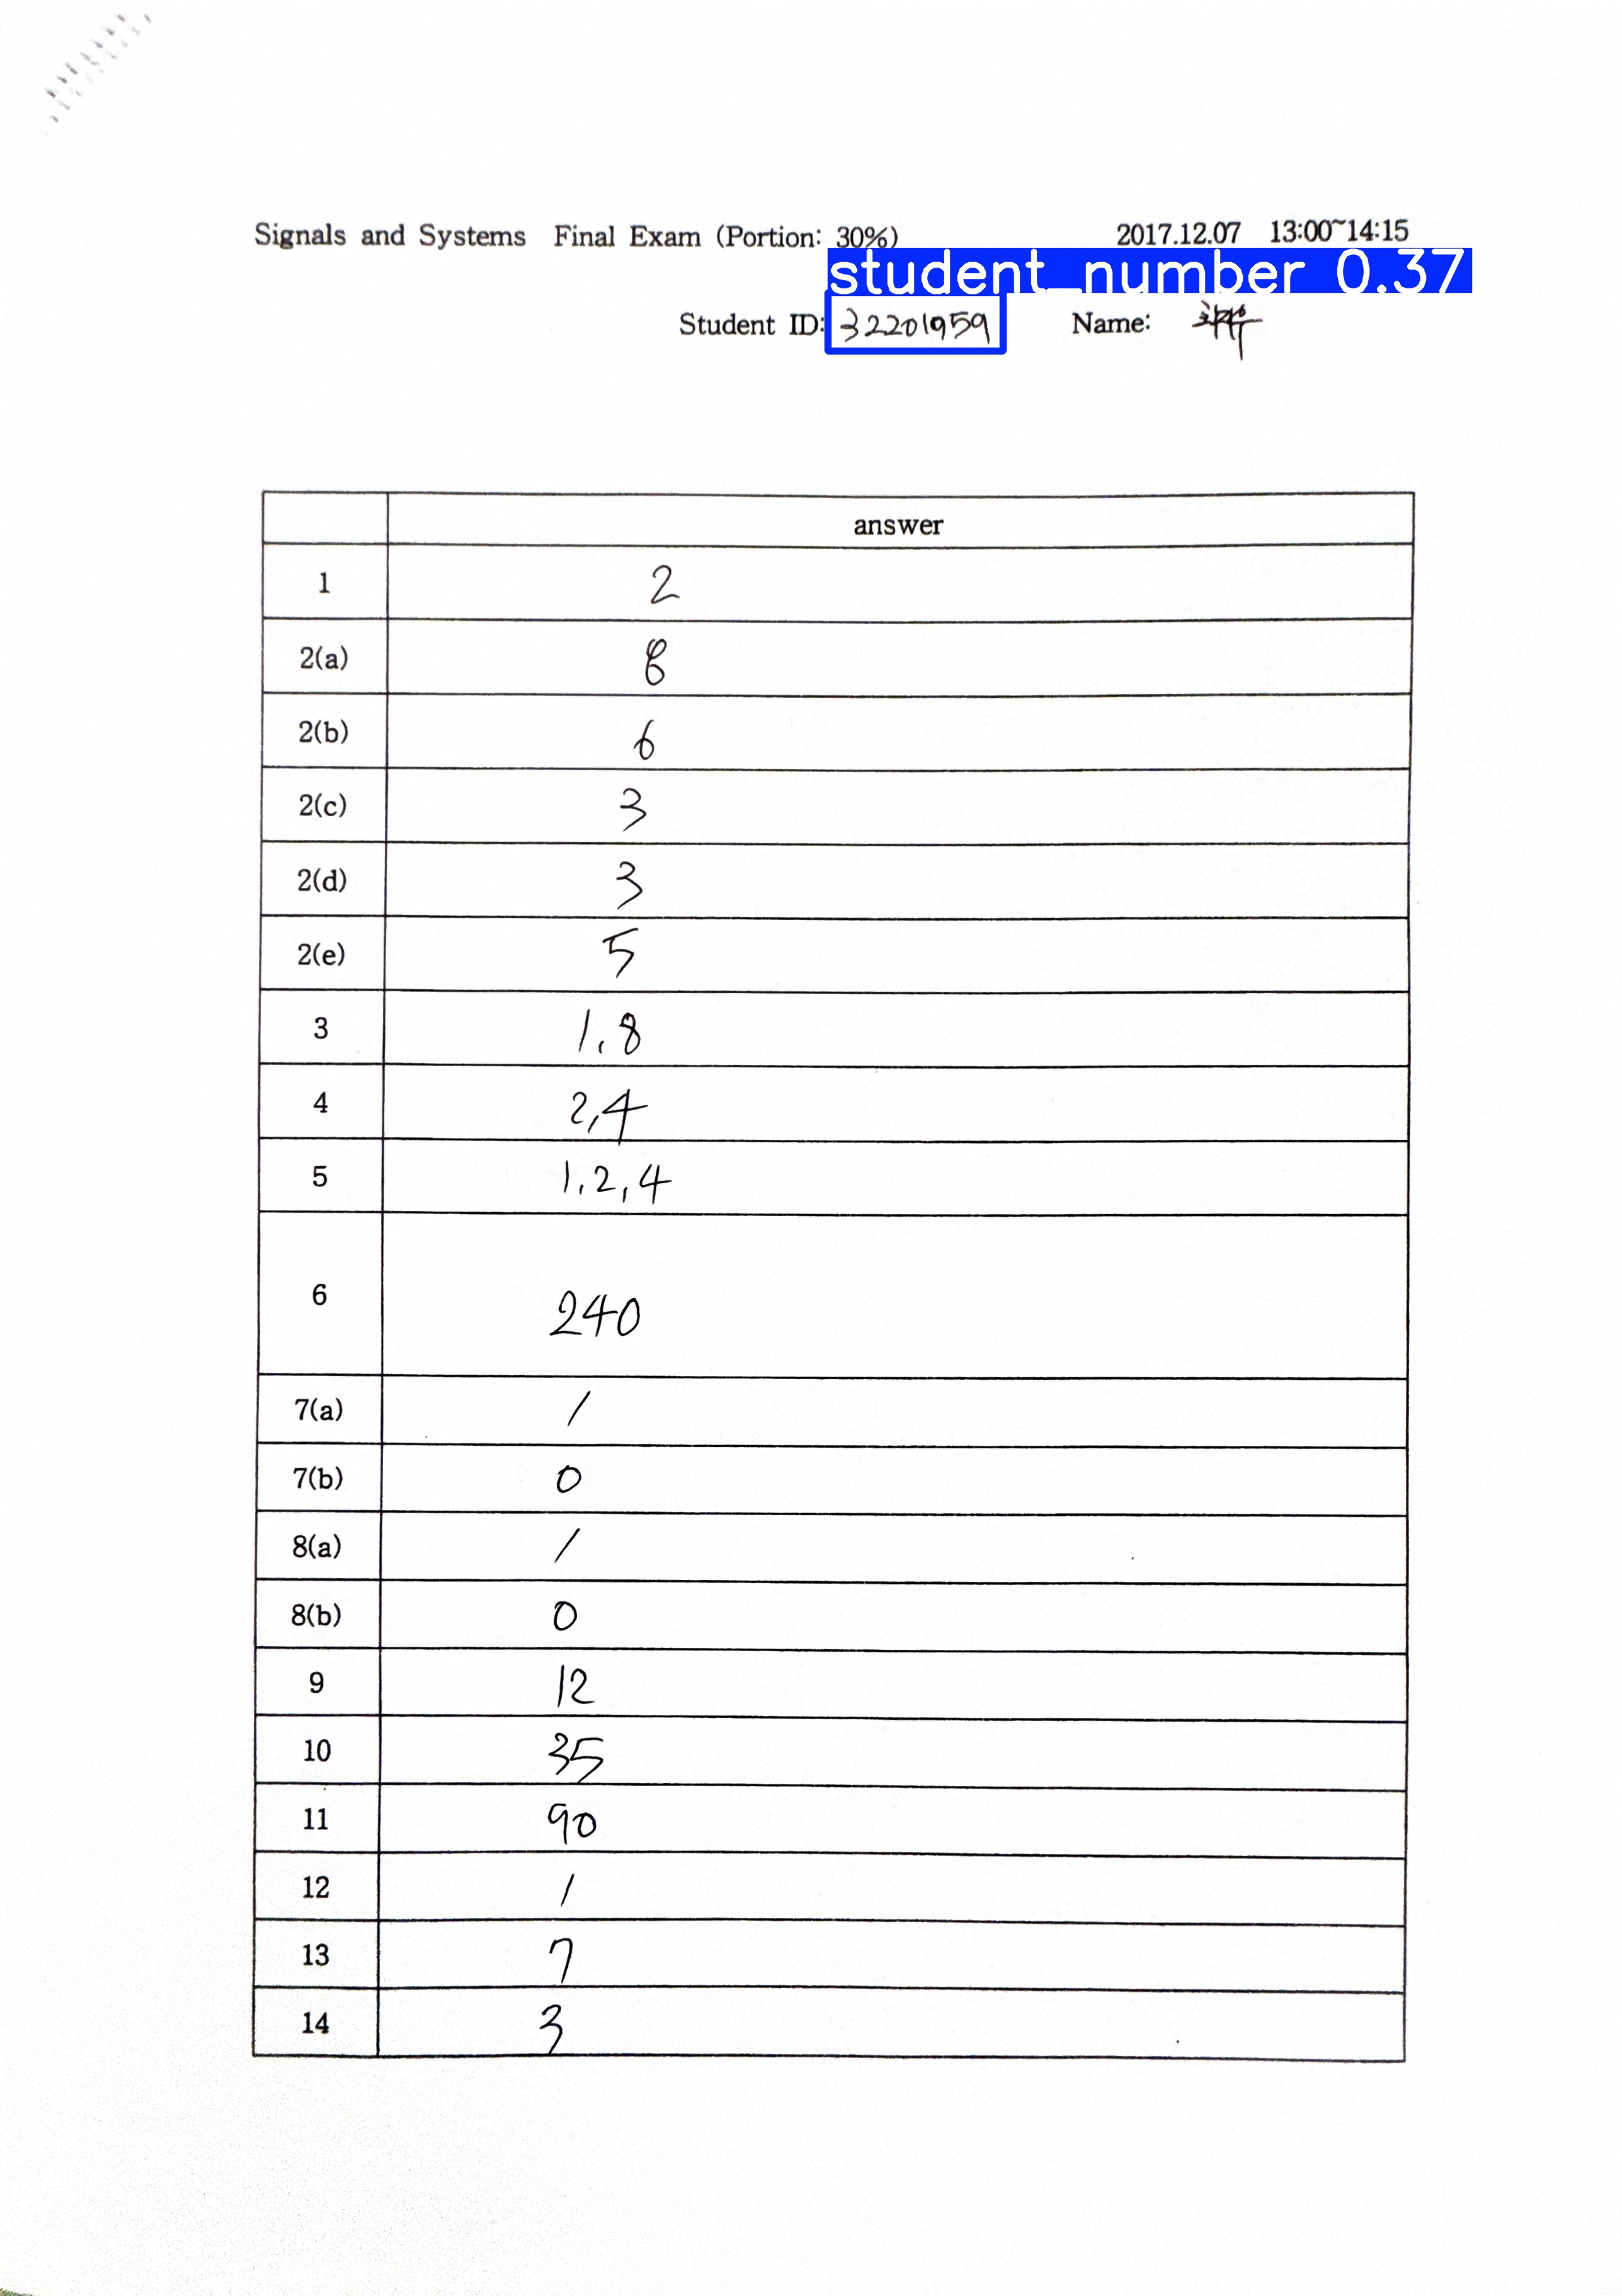 Signals and Systems Final Exam (Portion: 30%) 2017.12.07 13:00~14:15
student_number 0.37
Student ID: 32201959 Name:
answer
1 2
2(a) 8
2(b) 6
2(c) 3
2(d) 3
2(e) 5
3 1,8
4 2,4
5 1,2,4
6 240
7(a) 1
7(b) 0
8(a) 1
8(b) 0
9 12
10 35
11 90
12 1
13 7
14 3